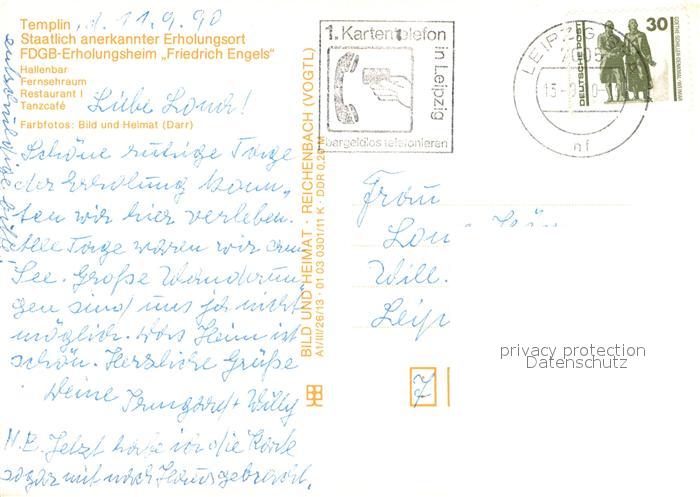 Templin, d. 11.9.90
Staatlich anerkannter Erholungsort
FDGB-Erholungsheim „Friedrich Engels“
Hallenbar
Fernsehraum
Restaurant I
Tanzcafé
Farbfotos: Bild und Heimat (Darr)
Liebe Lona!
Schöne ruhige Tage
der Erholung konn„
ten wir hier verleben.
Alle Tage waren wir am
See. Große Wanderun„
gen sind uns ja nicht
möglich. Das Heim ist
schön. Herzliche Grüße
Deine Irmgard + Willy
N.B. Jetzt habe ich die Karte
sogar mit nach Hause gebracht.
BILD UND HEIMAT · REICHENBACH (VOGTL)
A1/III/26/13 · 01 03 0301/11 K · DDR 0,20 M
1. Kartentelefon
in Leipzig
bargeldlos telefonieren
LEIPZIG
7005
nf
DEUTSCHE POST
30
GOETHE-SCHILLER-DENKMAL · WEIMAR
Frau
Will.
Leip
7
privacy protection
Datenschutz